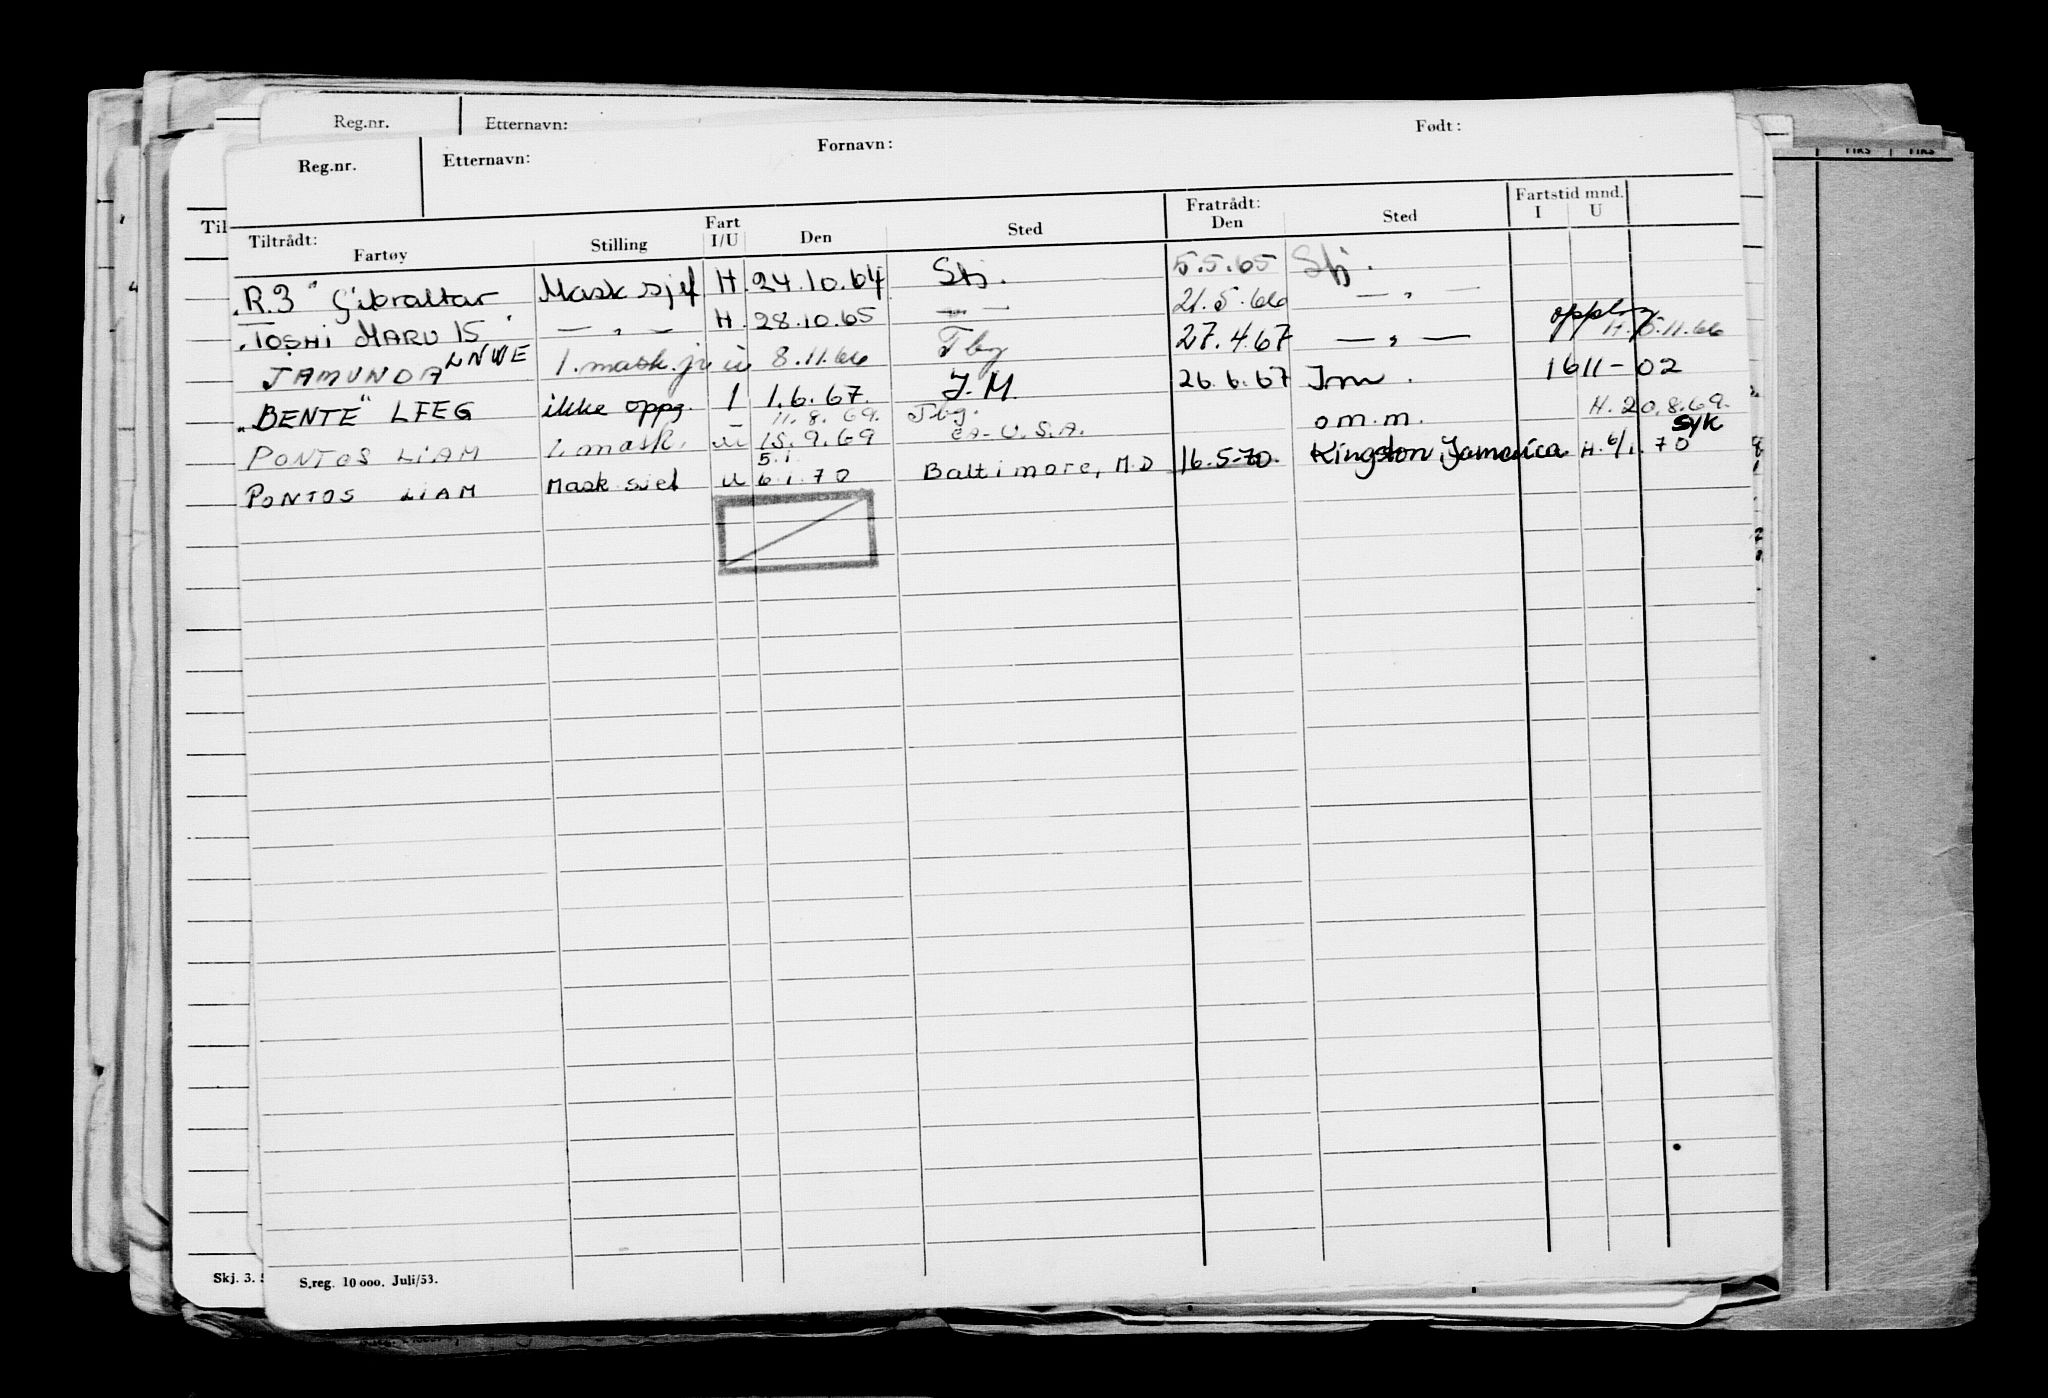 Reg.nr. Etternavn:
Reg.nr. Etternavn: Fornavn: Født:
Til
Tiltrådt: Fartøy Stilling Fart I/U Den Sted Fratrådt: Den Sted Fartstid mnd. I U
„R.3" Gibraltar Mask sjef H. 24.10.64 Stj. 5.5.65 Stj.
„TOSHI MARU 15" — „ — H. 28.10.65 — — 21.5.66 — „ —
JAMUNDA LNWE 1. mask. u 8.11.66 Tbg 27.4.67 — „ — H. 5.11.66
„BENTE" LEEG ikke oppg. I 1.6.67. J.M. 26.6.67 Jm. 1611-02
11.8.69. Tbg.
PONTOS LIAM 1. mask. u 15.9.69 CA-U.S.A. o m.m. H. 20.8.69.
5.1 syk
PONTOS LIAM Mask sjef u 6.1.70 Baltimore, M.D 16.5-70. Kingston, Jamaica H. 6/1.70
Skj. 3.
S.reg. 10 000. Juli/53.